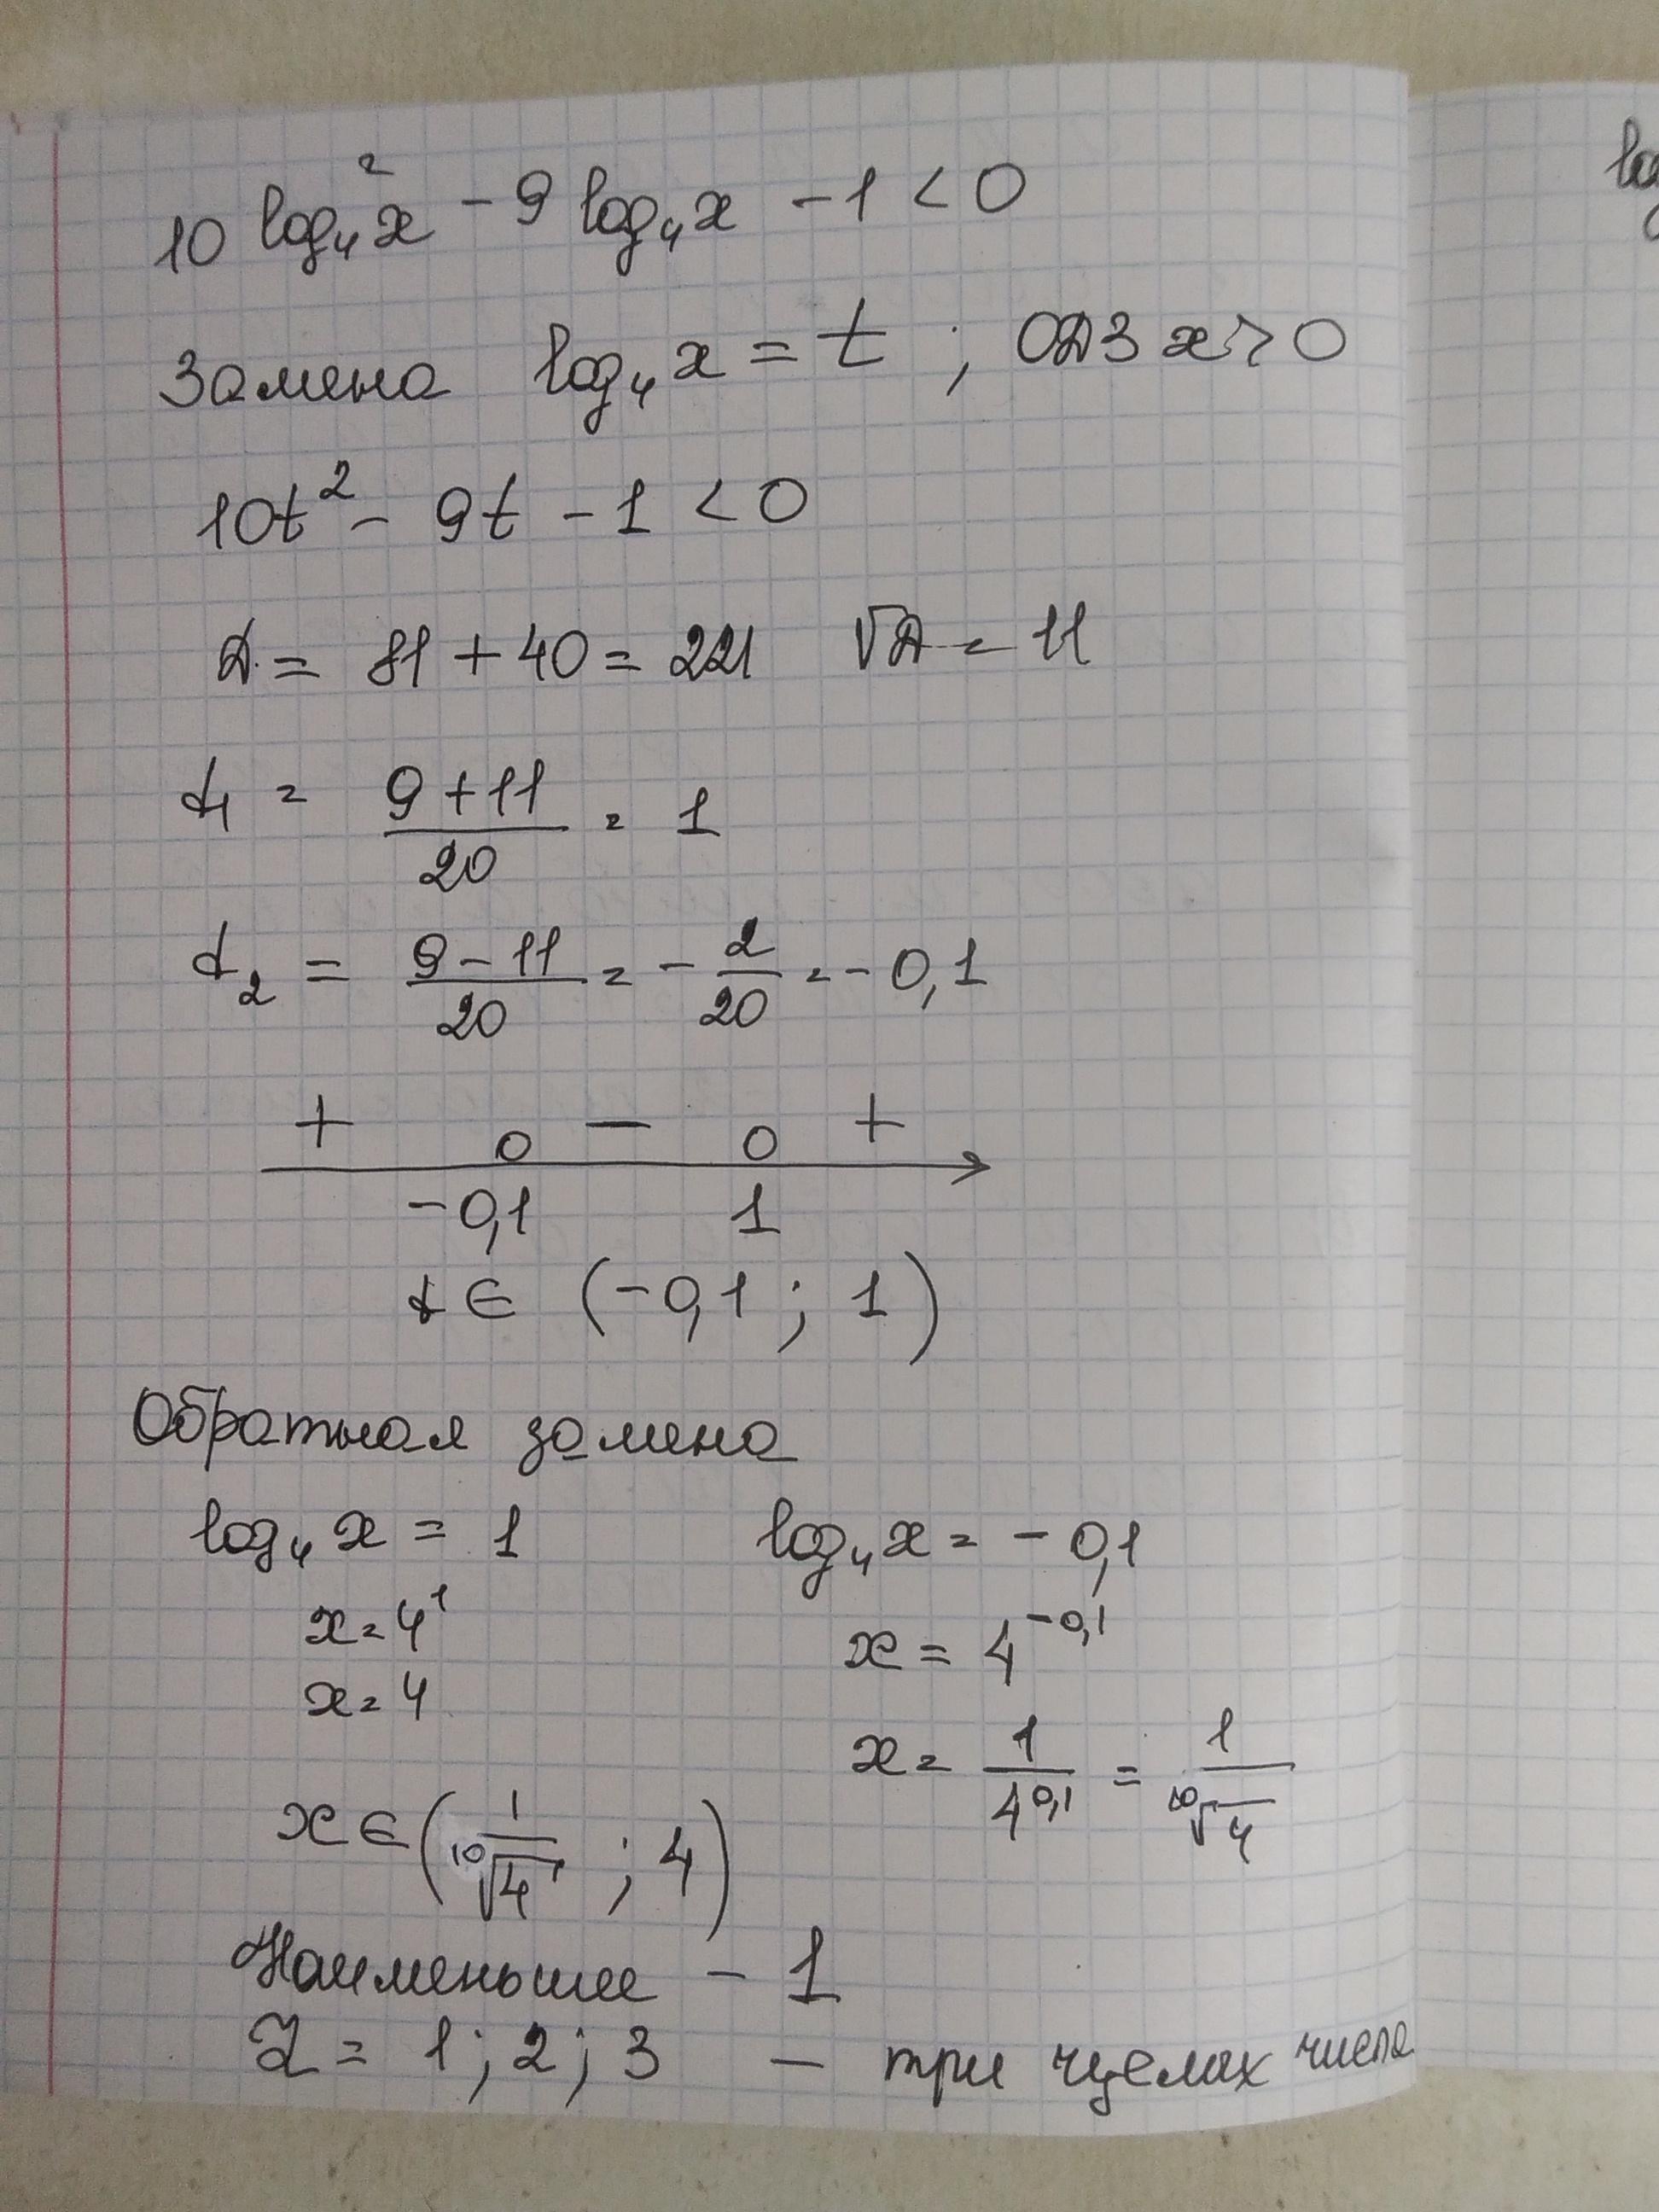 10 log₄²x - 9 log₄x - 1 < 0
Замена log₄x = t ; ОДЗ x > 0
10t² - 9t - 1 < 0
Д = 81 + 40 = 221 √Д = 11
t₁ = (9 + 11)/20 = 1
t₂ = (9 - 11)/20 = - 2/20 = - 0,1
+ - +
-0,1 1
t ∈ (-0,1 ; 1)
Обратная замена
log₄x = 1 log₄x = - 0,1
x = 4¹ x = 4^(-0,1)
x = 4
x = 1/4^(0,1) = 1/¹⁰√4
x ∈ (1/¹⁰√4 ; 4)
Наименьшее - 1
Z = 1 ; 2 ; 3 — три целых числа